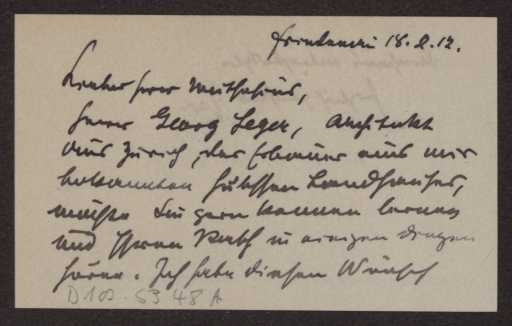 Frintanni 18.2.12.
Lieber Herr Muthesius,
Herr Georg Leger, Architekt
aus Zürich, der Erbauer eines mir
bekannten hübschen Landhauses,
möchte Sie gern kennen lernen
und Ihren Rath in einigen Dingen
hören. Ich habe diesen Wunsch
D 102-5348 A